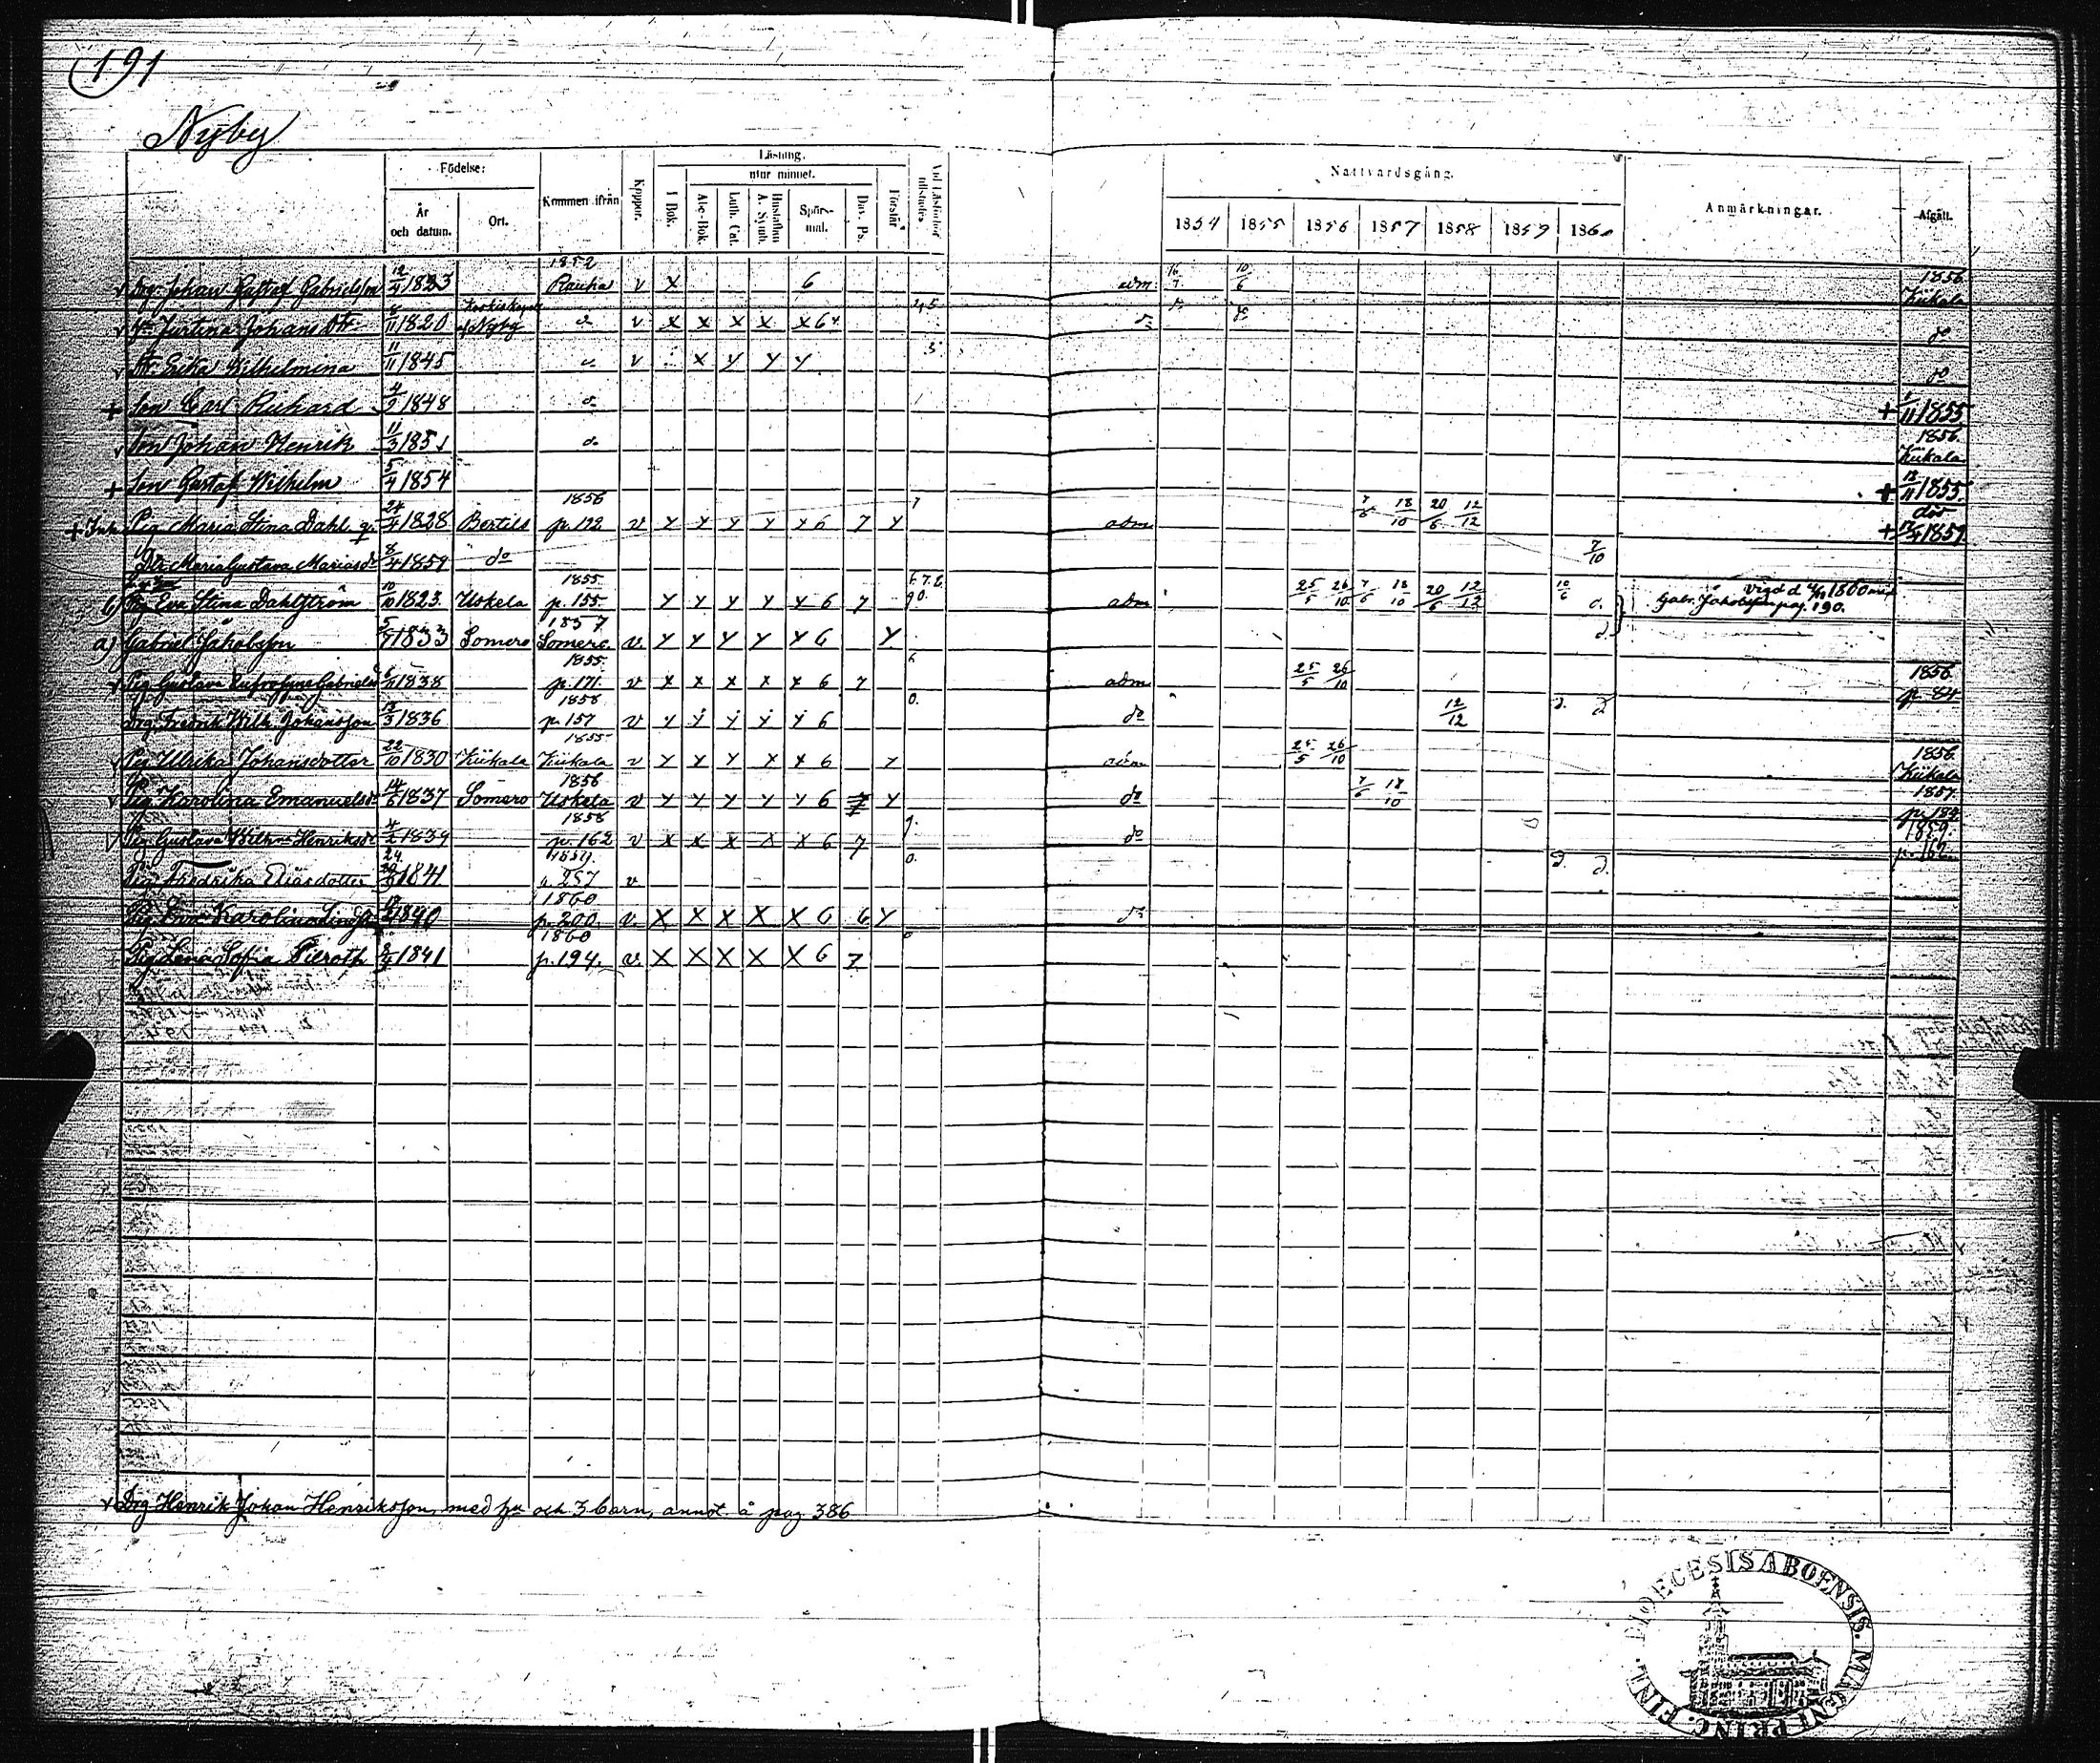 191
Nyby
Födelse: Läsning. Nattvardsgång.
utur minnet.
År och datum. Ort. Kommen ifrån Koppor. I Bok. Abc-Bok. Luth. Cat. Hustaflan A. Symb. Spörs-mål. Dav. Ps. Förstår Vid Läsförhör tillstädes 1854 1855 1856 1857 1858 1859 1860 Anmärkningar. Afgått.
v Drg. Johan Gustaf Gabrielsson 12/4 1823 1852 v x 6 adm. 16/7 10/6 1856 Kiikala
v Hu Justina Johans Dr 8/11 1820 Nyby do v x x x x x 6 4 4,5 do do do do
v Dr Erika Wilhelmina 11/11 1845 do v x y y y 5 do
+ Son Carl Richard 4/2 1848 do + 1/11 1855
v Son Johan Henrik 11/3 1851 do 1856 Kiikala
+ Son Gustaf Wilhelm 5/4 1854 + 12/11 1855
+ Inh. Pig. Maria Stina Dahl 24/4 1828 Bertils 1856 p. 122 v y y y y y 6 7 y 7 adm 7/6 18/10 20/6 12/12 död + 12/4 1859
Dr Maria Gustava Mariasdr 8/4 1859 do 7/10
b) Pig. Eva Stina Dahlström 10/10 1823 Uskela 1855 p. 155 y y y y y 6 7 adm 25/5 26/10 7/6 18/10 20/6 12/12 10/6 d. Vigd d 1860 med Gabr. Jakobsson pag. 190.
a) Gabriel Jakobsson 1833 Somero 1857 Somero v. y y y y y 6 y d
v Pig. Gustava Eufrosyne Gabrielsd 1838 1855 p. 171 v x x x x x 6 7 6 adm 25/5 26/10 1856 p. 84
Drg. Fredrik Wilh. Johansson 13/3 1836 1858 p. 157 v y y y y y 6 0. do 12/12 d. d
v Pig Ulrika Johansdotter 22/10 1830 Kiikala 1855 Kiikala v y y y x x 6 y adm 25/5 26/10 1856 Kiikala
v Pig. Karolina Emanuelsdr 14/6 1837 Somero 1856 Uskela v y y y y y 6 7 y do 7/6 18/10 1857 p. 189
v Pig Gustava Wilhma Henriksdr 4/2 1839 1858 p. 162 v x x x x x 6 7 9. do 1859. p. 162
Pig Fredrika Eliasdotter 1841 1859. p. 257 v 0. d. d.
Pig Eva Karolina 1840 1860 p. 200 v. x x x x x 6 6 y do
Pig Lena Sofia Fieroth 8/2 1841 1860 p. 194. v. x x x x x 6 7 0
v Drg Henrik Johan Henriksson, med hu och 3 barn, annot. å pag 386
DIOECESIS ABOENSIS. MAGNI PRINC. FINL.